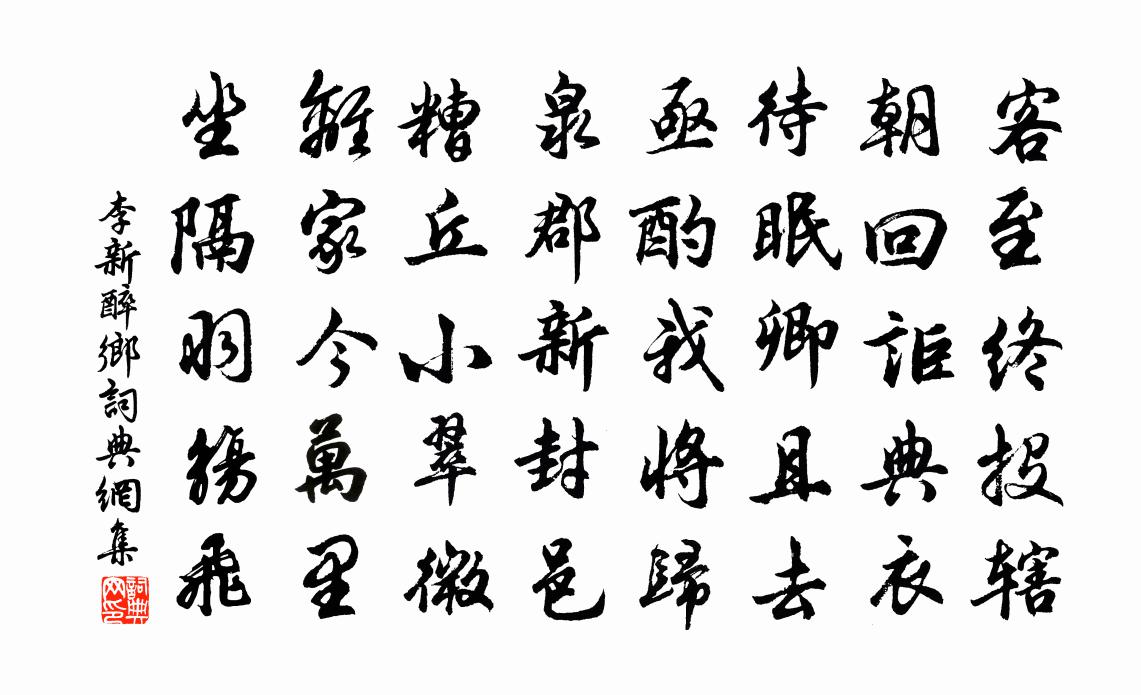 客至終投轄
朝回詎典衣
待眠卿且去
亟酌我將歸
泉郡新封邑
糟丘小翠微
離家今萬里
坐隔羽觴飛
李新醉鄉詞典網集